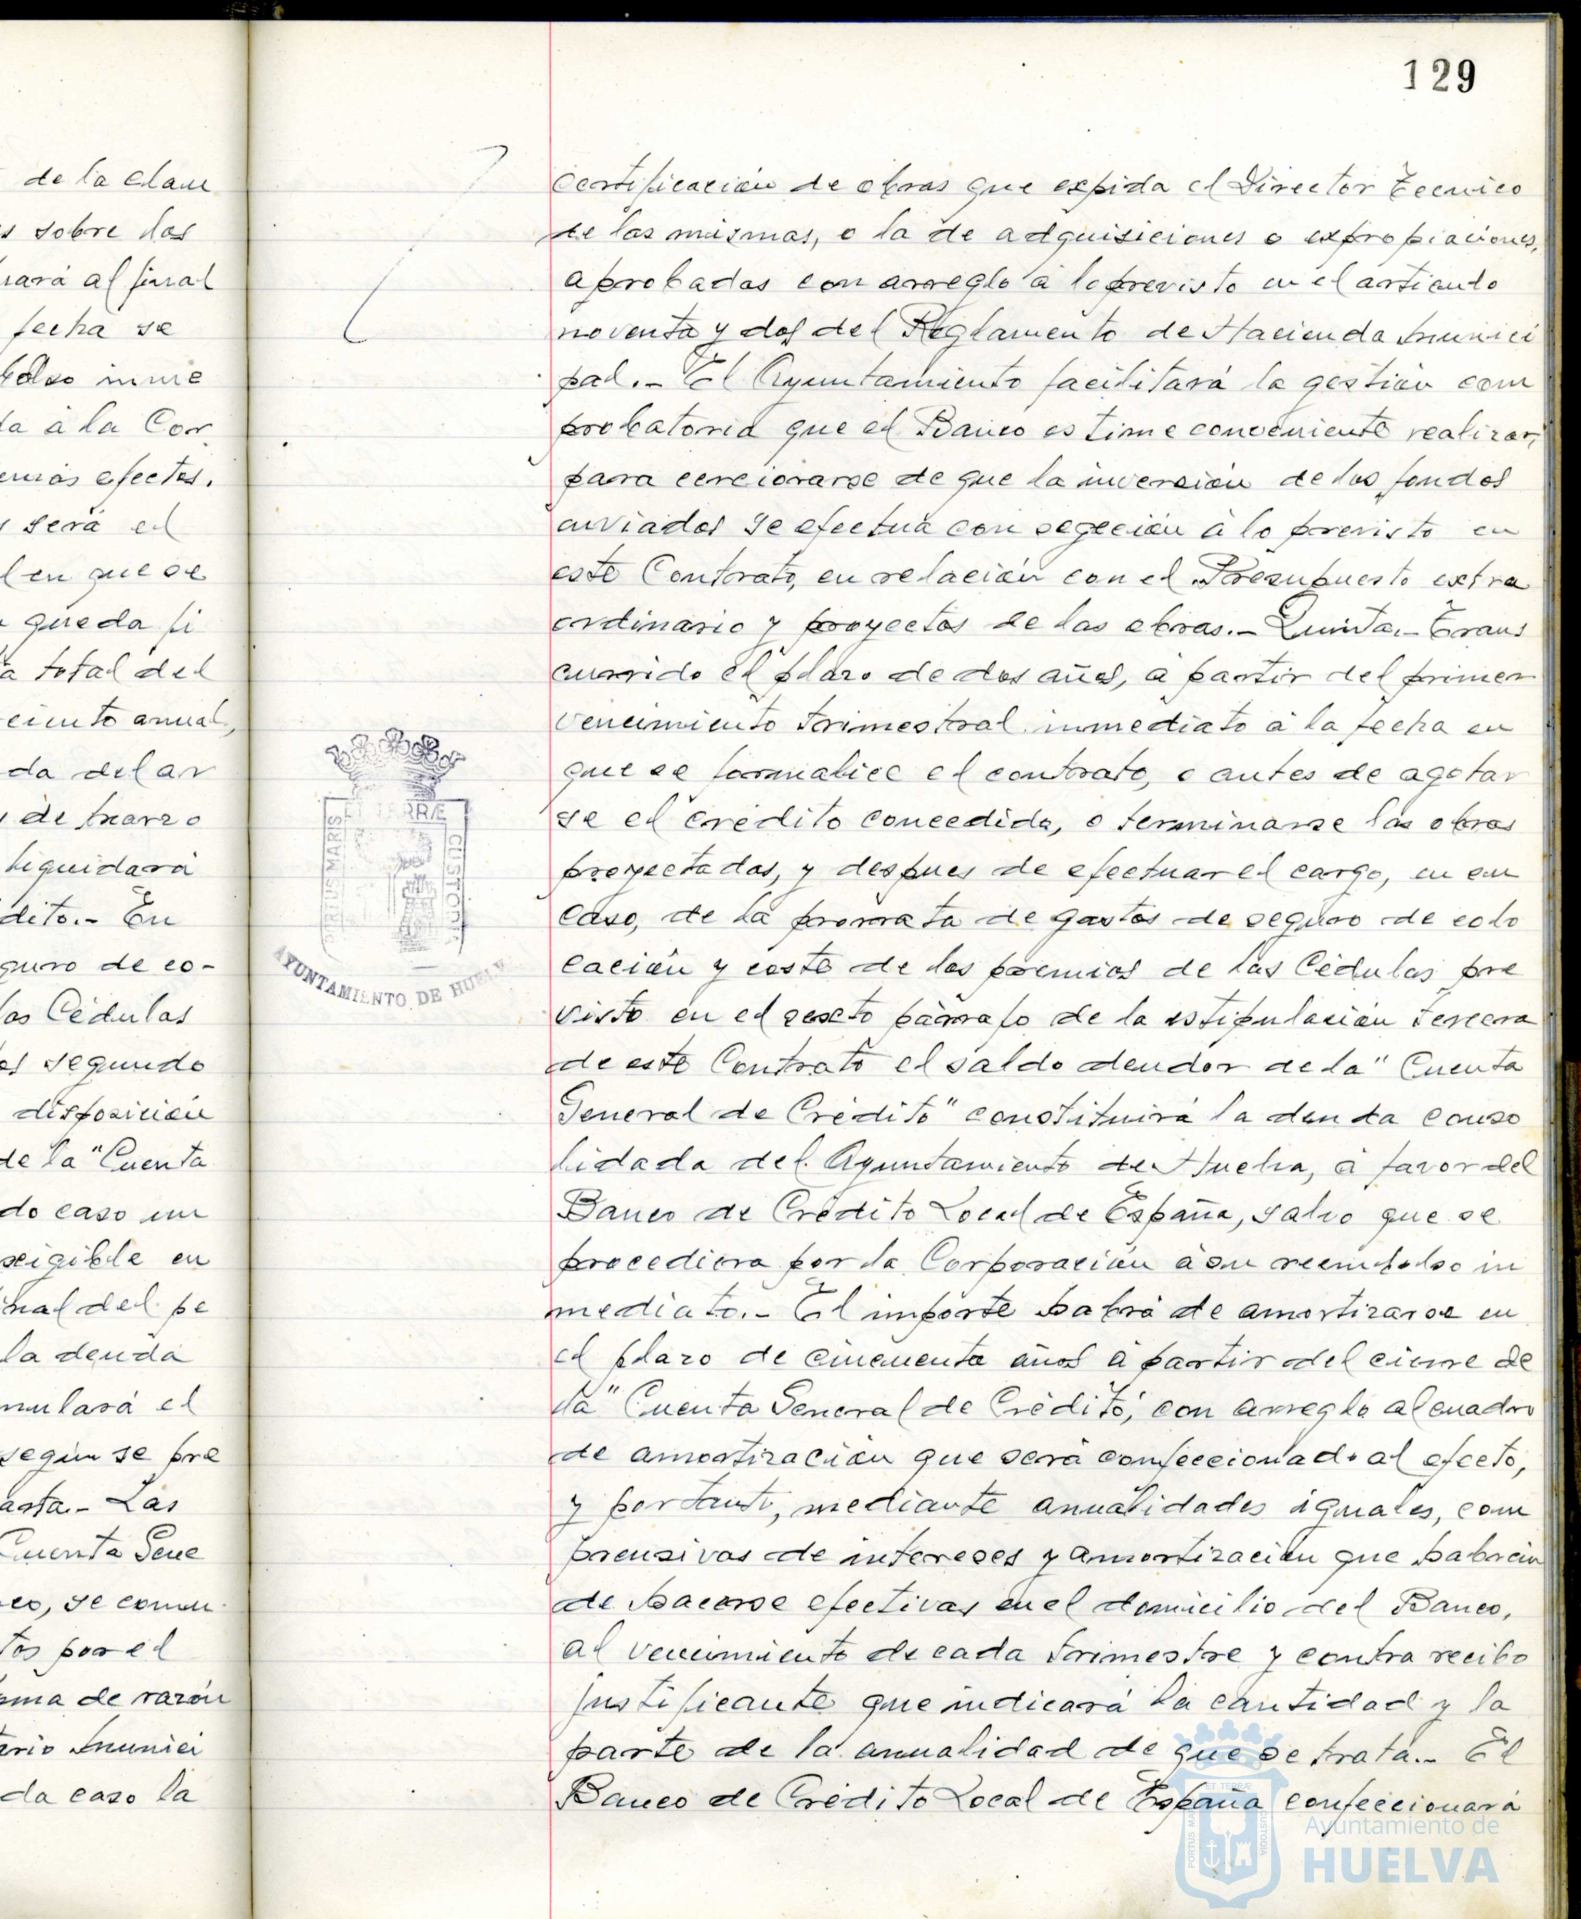 129
de la clau
s sobre las
rará al final
fecha se
bolso inme
da à la Cor
emás efectos.
s será el
l en que se
queda fi
a total del
ciento anual,
da del ar
de marzo
liquidará
dito.- En
guro de co-
las Cédulas
os segundo
disposición
de la "Cuenta
do caso un
xigible en
nal del pe
la deuda
mulará el
según se pre
arta.- Las
Cuenta Gene
co, se comu
tos por el
oma de razón
ario Munici
da caso la
certificación de obras que expida el Director Tecnico
de las mismas, o la de adquisiciones o expropiaciones,
aprobadas con arreglo à lo previsto en el articulo
noventa y dos del Reglamento de Hacienda Munici
pal.- El Ayuntamiento facilitará la gestión com
probatoria que el Banco estime conveniente realizar,
para cerciorarse de que la inversión de los fondos
enviados se efectua con segeción à lo previsto en
este Contrato, en relación con el Presupuesto extra
ordinario y proyectos de las obras.- Quinta.- Trans
currido el plazo de dos años, à partir del primer
vencimiento trimestral inmediato à la fecha en
que se formalice el contrato, o antes de agotar
se el crédito concedido, o terminarse las obras
proyectadas, y despues de efectuar el cargo, en su
caso, de la prorrata de gastos de seguro de colo
cación y coste de los premios de las Cédulas pre
visto en el sexto párrafo de la estipulación tercera
de este Contrato el saldo deudor de la "Cuenta
General de Crédito" constituirá la deuda conso
lidada del Ayuntamiento de Huelva, à favor del
Banco de Crédito Local de España, salvo que se
procediera por la Corporación à su reembolso in
mediato.- El importe habrá de amortizarse en
el plazo de cincuenta años à partir del cierre de
la "Cuenta General de Crédito", con arreglo al cuadro
de amortización que será confeccionado al efecto,
y por tanto, mediante anualidades iguales, com
prensivas de intereses y amortización que habrán
de hacerse efectivas en el domicilio del Banco,
al vencimiento de cada trimestre y contra recibo
justificante que indicará la cantidad y la
parte de la anualidad de que se trata.- El
Banco de Crédito Local de España confeccionará
PORTUS MARIS ET TERRÆ CUSTODIA
AYUNTAMIENTO DE HUELVA
PORTUS MARIS ET TERRÆ CUSTODIA
Ayuntamiento de
HUELVA